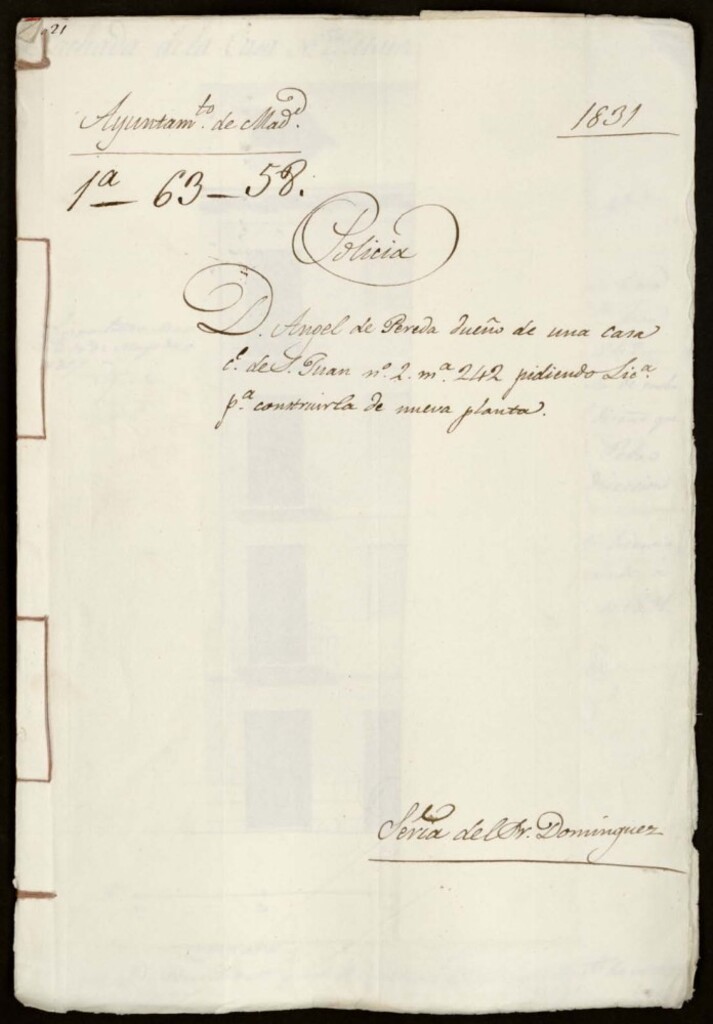 21
Ayuntam.to de Mad.d
1831
1a – 63 – 58.
Policia
D. Angel de Pereda dueño de una casa
c.e de S. Juan nº. 2. m.a 242 pidiendo Lic.a
p.a construirla de nueva planta.
Sería del Sr. Dominguez